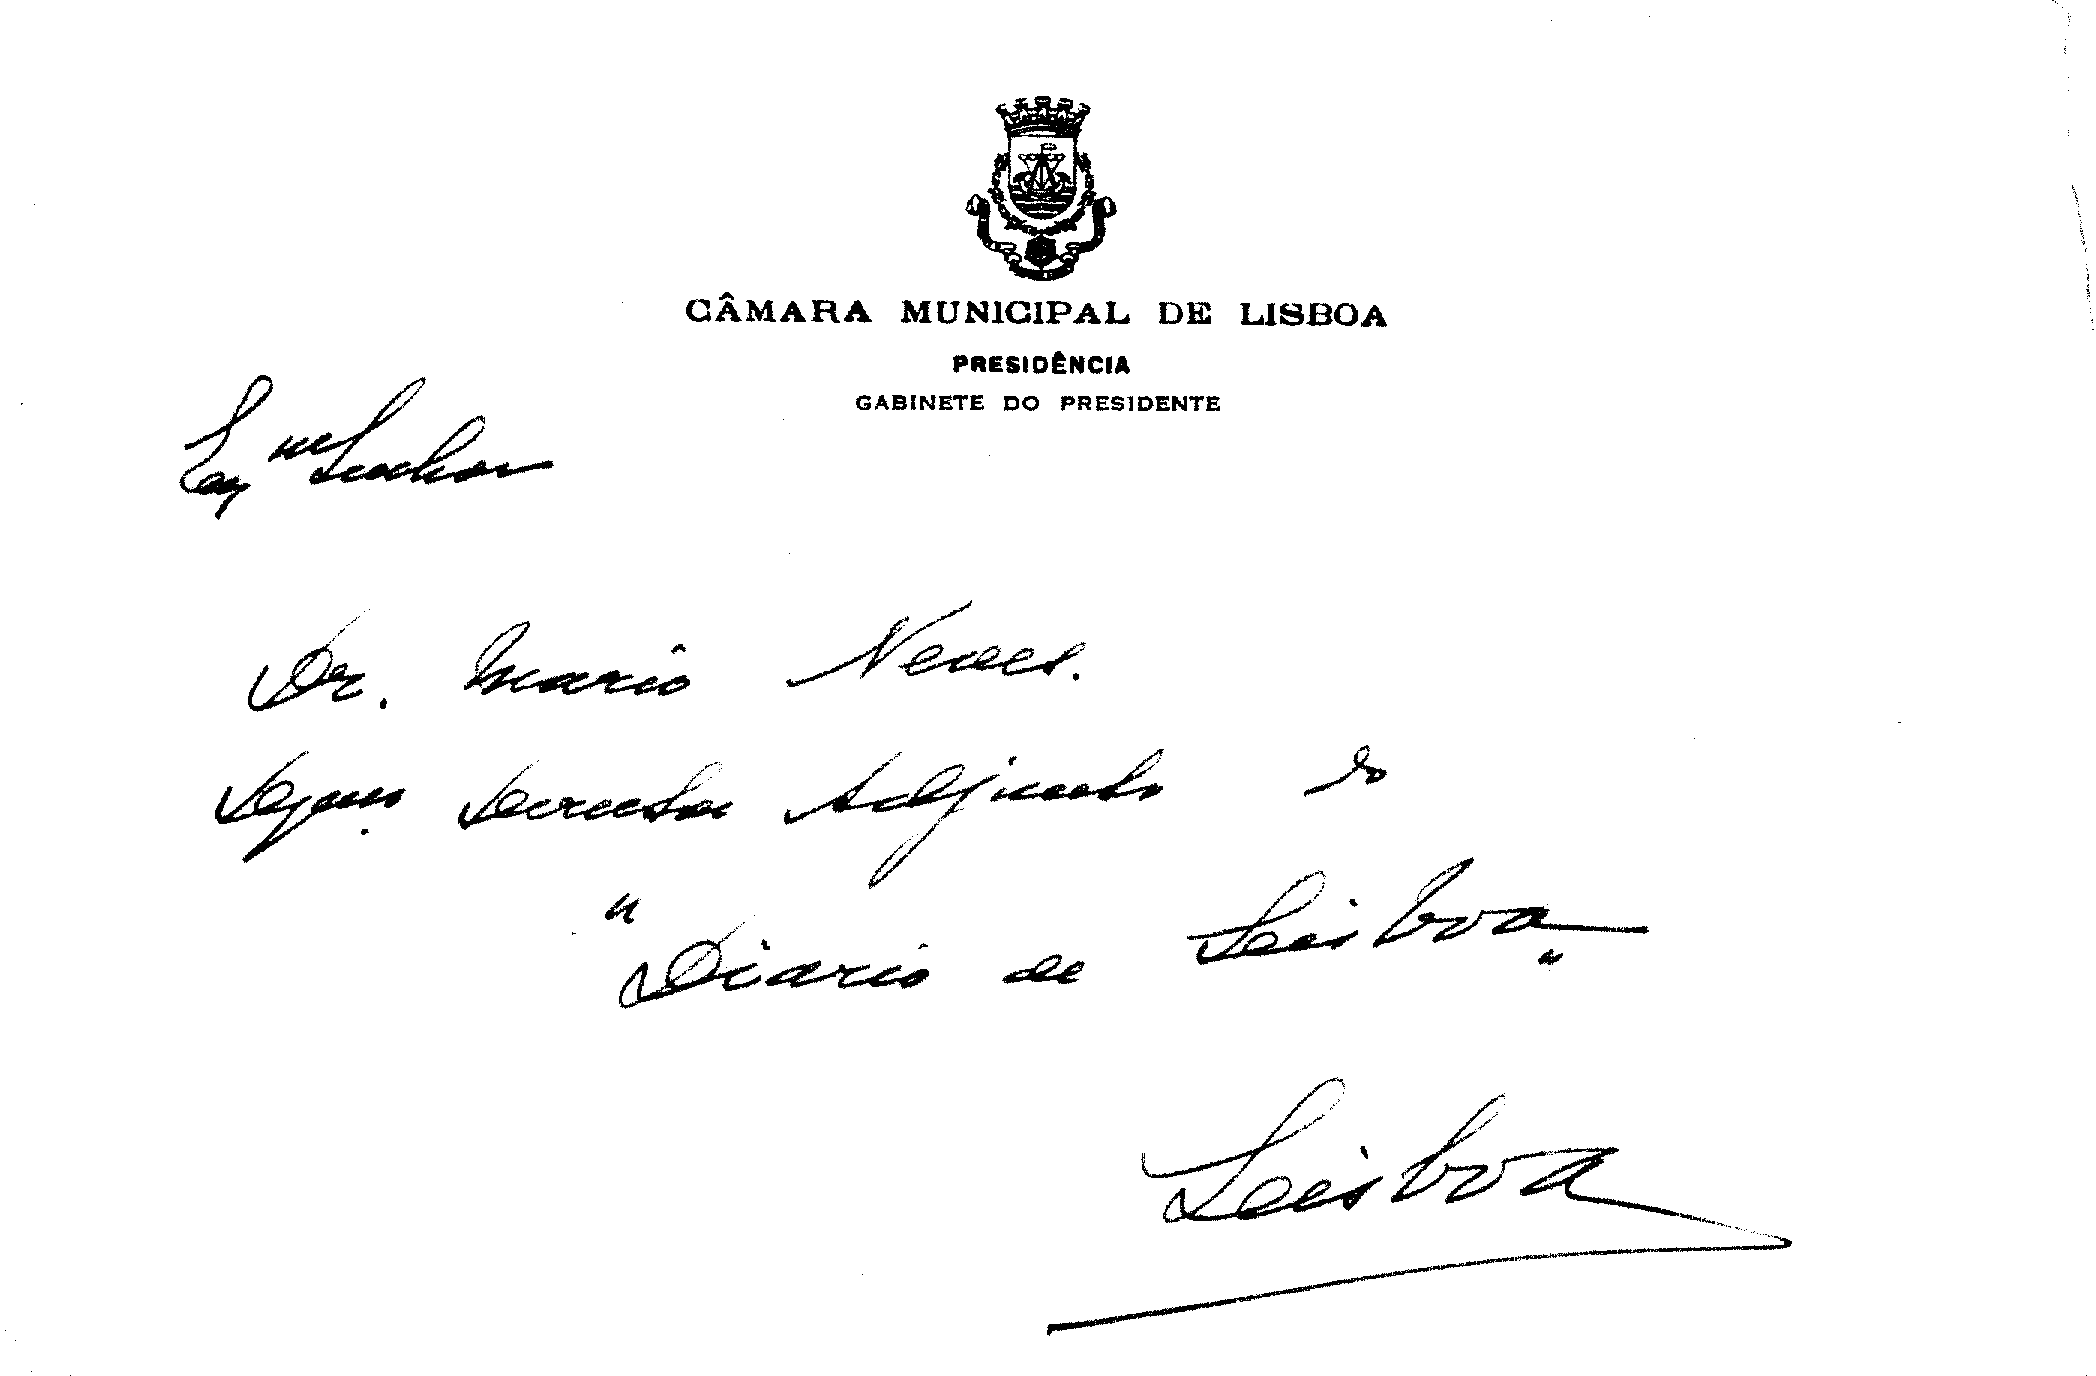 CÂMARA MUNICIPAL DE LISBOA
PRESIDÊNCIA
GABINETE DO PRESIDENTE
Exmo Senhor
Dr. Mario Neves.
Adjunto do
"Diario de Lisboa"
Lisboa